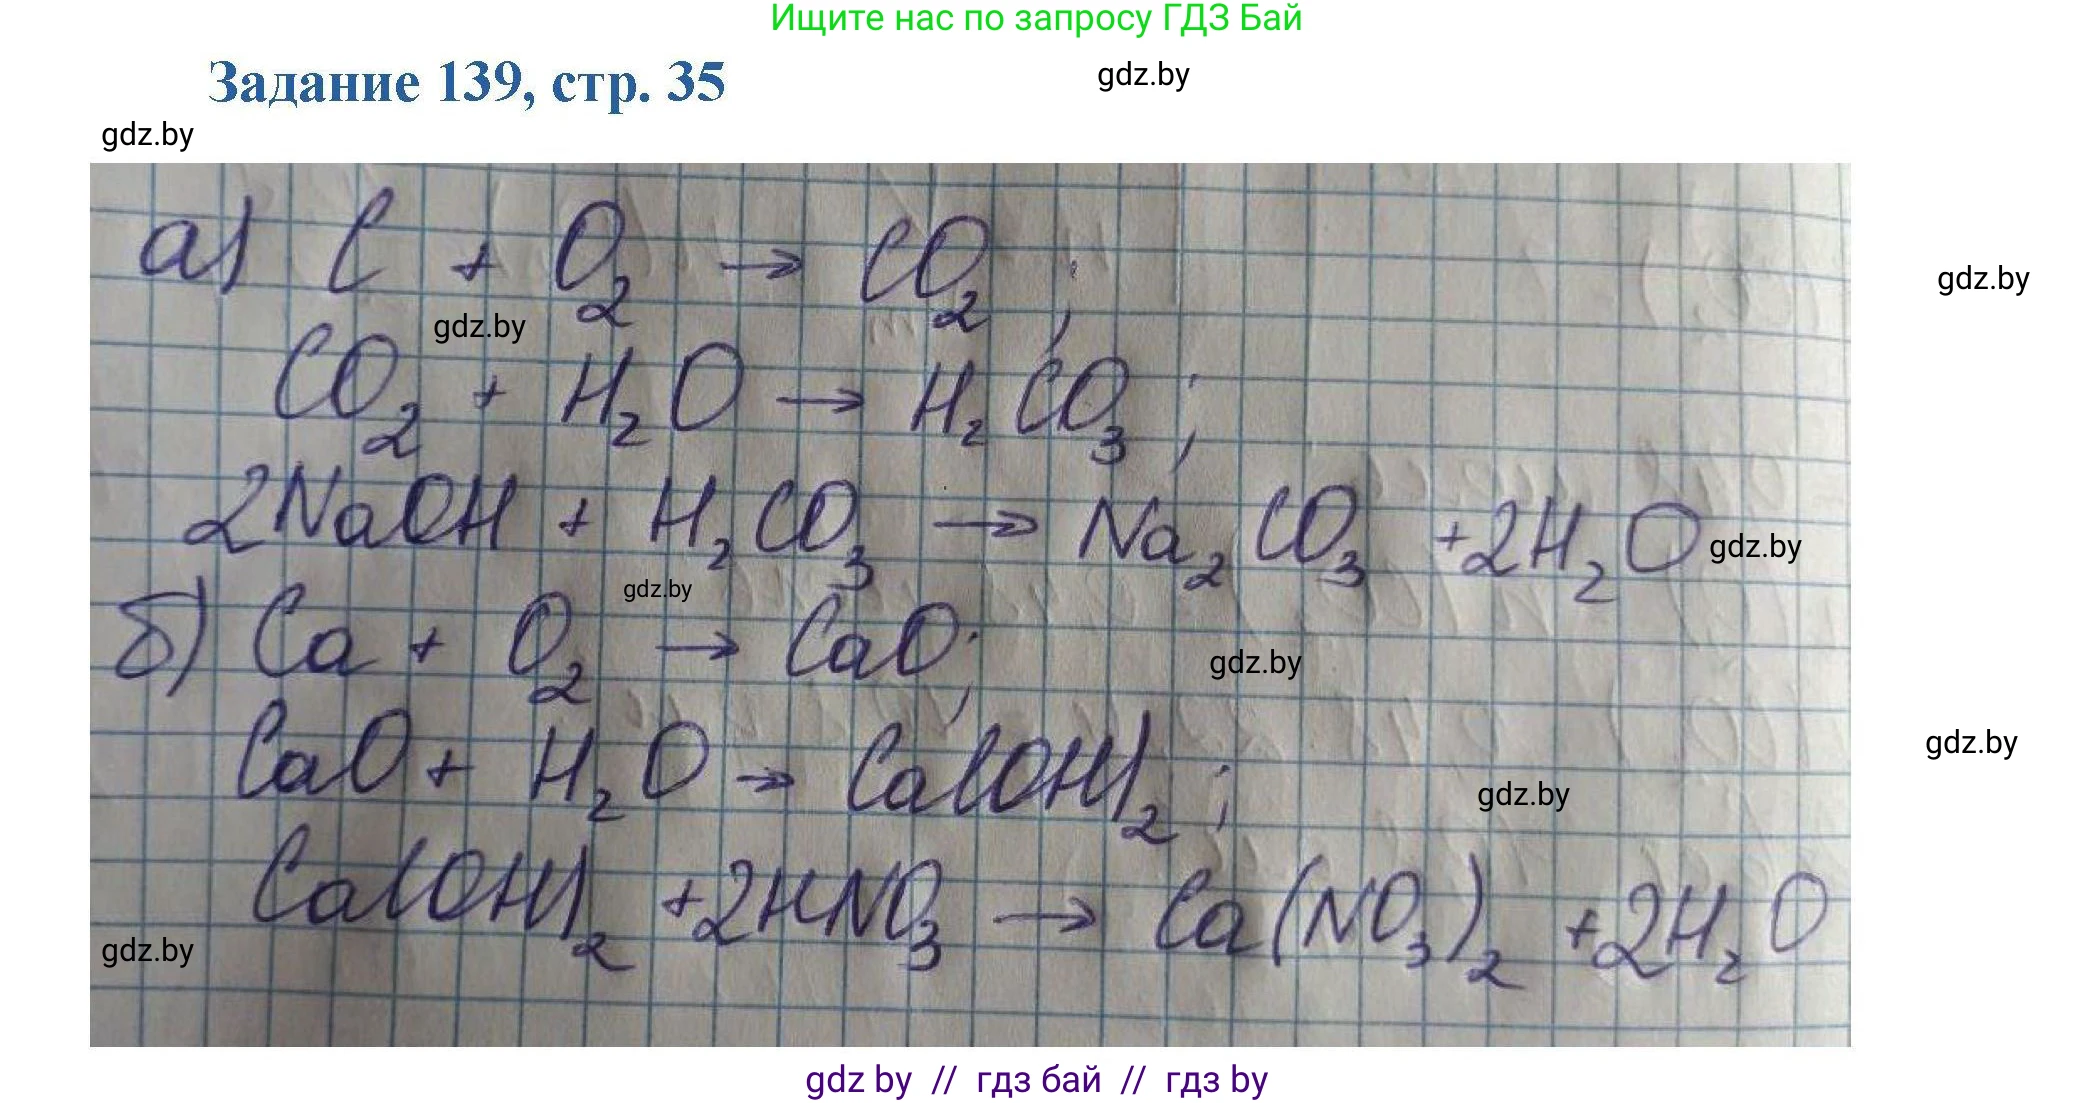 Ищите нас по запросу ГДЗ Бай
Задание 139, стр. 35
gdz.by
gdz.by
а) C + O₂ → CO₂;
gdz.by
gdz.by
CO₂ + H₂O → H₂CO₃;
2NaOH + H₂CO₃ → Na₂CO₃ + 2H₂O
gdz.by
gdz.by
б) Ca + O₂ → CaO;
gdz.by
CaO + H₂O → Ca(OH)₂;
gdz.by
gdz.by
Ca(OH)₂ + 2HNO₃ → Ca(NO₃)₂ + 2H₂O
gdz.by
gdz by // гдз бай // гдз by